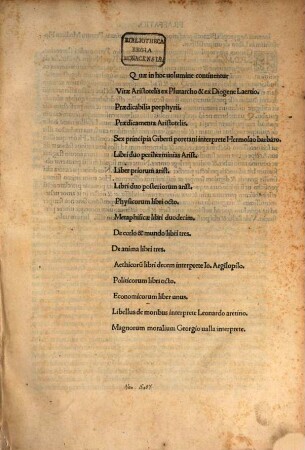 BIBLIOTHECA
REGIA
MONACENSIS.
Quæ in hoc uolumine continentur
Vitæ Aristotelis ex Plutarcho & ex Diogene Laertio.
Prædicabilia porphyrii.
Prædicamenta Aristotelis.
Sex principia Giberti poretani interprete Hermolao barbaro.
Libri duo periherminias Arist.
Liber priorum arist.
Libri duo posteriorum arist.
Physicorum libri octo.
Metaphisicæ libri duodecim.
De cœlo & mundo libri tres.
De anima libri tres.
Aethicorū libri decem interprete Io. Argilopilo.
Politicorum libri octo.
Economicorum liber unus.
Libellus de moribus interprete Leonardo aretino.
Magnorum moralium Georgio ualla interprete.